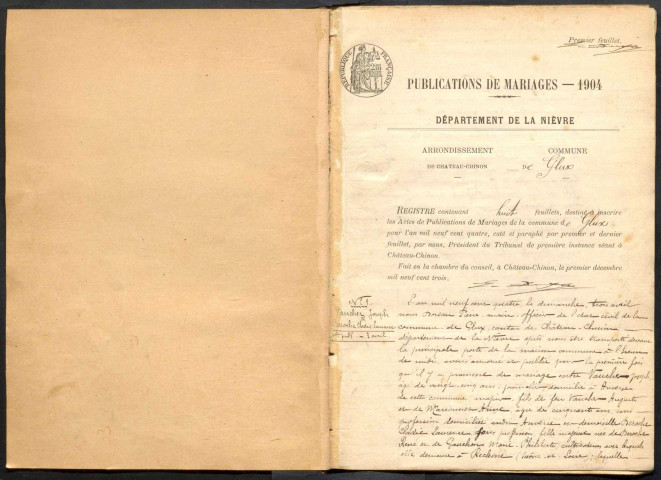 Premier feuillet.
RÉPUBLIQUE FRANÇAISE
PUBLICATIONS DE MARIAGES — 1904
DÉPARTEMENT DE LA NIÈVRE
ARRONDISSEMENT COMMUNE
DE CHATEAU-CHINON de Glux
REGISTRE contenant huit feuillets, destiné à inscrire
les Actes de Publications de Mariages de la commune de Glux
pour l'an mil neuf cent quatre, coté et paraphé par premier et dernier
feuillet, par nous, Président du Tribunal de première instance séant à
Château-Chinon.
Fait en la chambre du conseil, à Château-Chinon, le premier décembre
mil neuf cent trois.
N° 1.
Joseph
L'an mil neuf cent quatre le dimanche trois avril
nous maire officier de l'état civil de la
commune de Glux canton de Château-Chinon
département de la Nièvre après nous être transporté devant
la principale porte de la maison commune à l'heure
de midi avons annoncé et publié pour la première fois
qu'il y a promesse de mariage entre Joseph
âgé de vingt cinq ans domicilié à
de cette commune majeur fils de feu Auguste
et de âgée de cinquante ans sans
profession domiciliée et demoiselle
Laurence sans profession fille majeure née de
René et de Marie cultivateurs avec lesquels
elle demeure à (Saône et Loire) laquelle